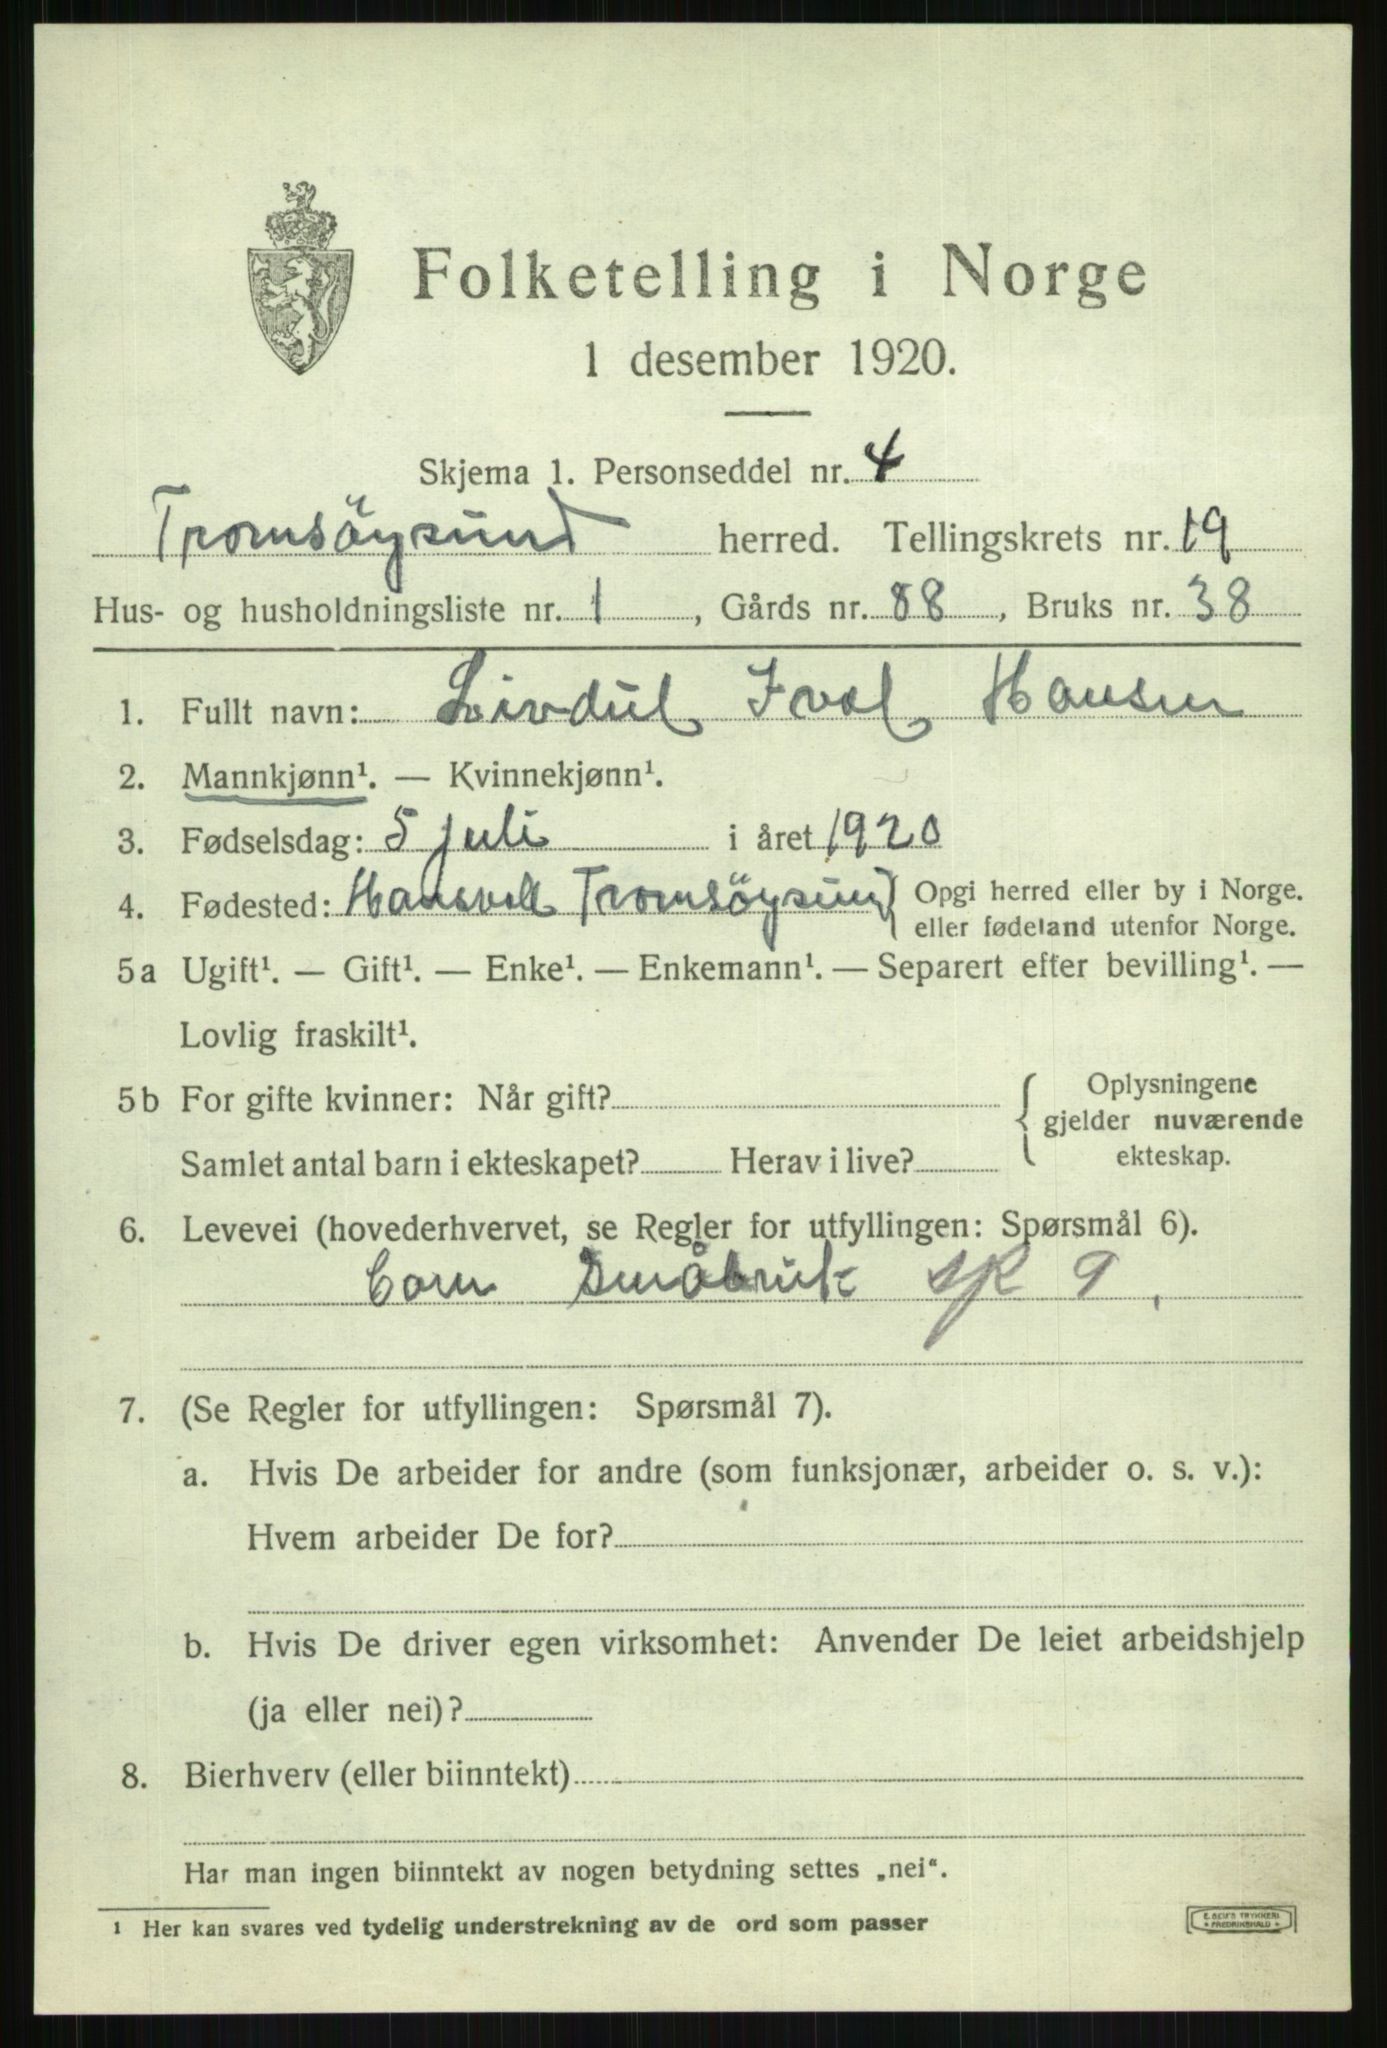 Folketelling i Norge
1 desember 1920.
Skjema 1. Personseddel nr. 4
Tromsöysund herred. Tellingskrets nr. 19
Hus- og husholdningsliste nr. 1, Gårds nr. 88, Bruks nr. 38
1. Fullt navn: Hansen
2. Mannkjønn¹. — Kvinnekjønn¹.
3. Fødselsdag: 5 juli i året 1920
4. Fødested: Tromsöysund { Opgi herred eller by i Norge.
eller fødeland utenfor Norge.
5a Ugift¹. — Gift¹. — Enke¹. — Enkemann¹. — Separert efter bevilling¹. —
Lovlig fraskilt¹.
5b For gifte kvinner: Når gift? { Oplysningene
gjelder nuværende
Samlet antal barn i ekteskapet? Herav i live? ekteskap.
6. Levevei (hovederhvervet, se Regler for utfyllingen: Spørsmål 6).
Småbruk 9
7. (Se Regler for utfyllingen: Spørsmål 7).
a. Hvis De arbeider for andre (som funksjonær, arbeider o. s. v.):
Hvem arbeider De for?
b. Hvis De driver egen virksomhet: Anvender De leiet arbeidshjelp
(ja eller nei)?
8. Bierhverv (eller biinntekt)
Har man ingen biinntekt av nogen betydning settes „nei“.
¹ Her kan svares ved tydelig understrekning av de ord som passer
E. SEM'S TRYKKERI
FREDRIKSHALD